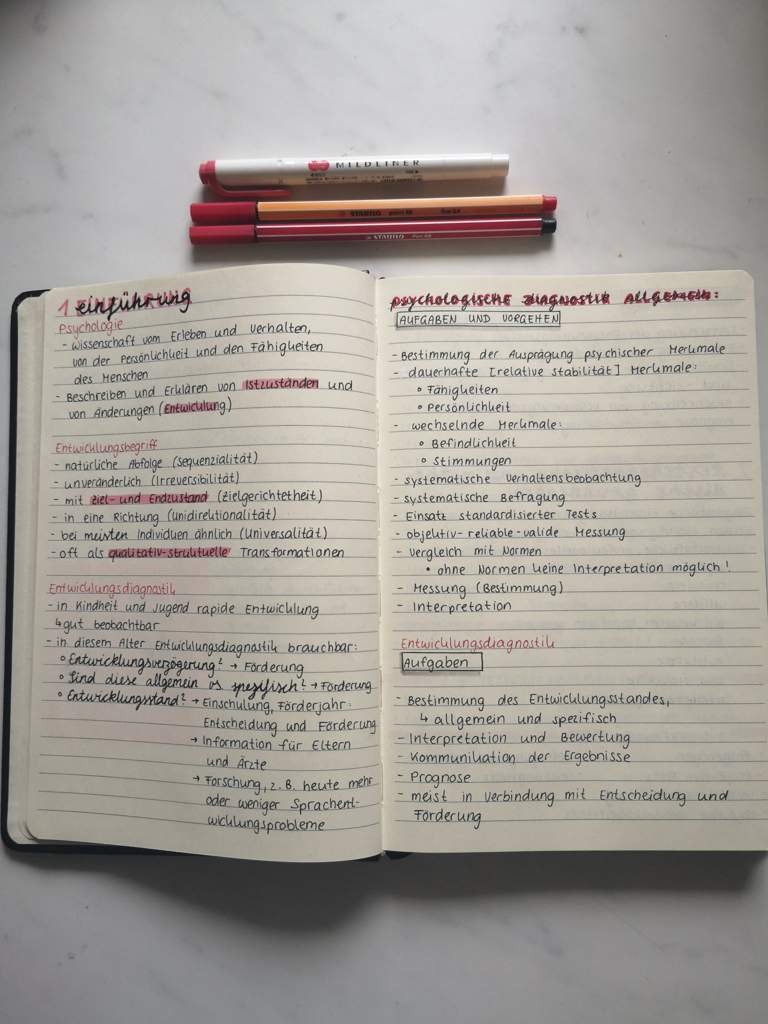 MILDLINER
STABILO point 88
STABILO Pen 68
1 EINFÜHRUNG
einführung
Psychologie
- Wissenschaft vom Erleben und Verhalten,
von der Persönlichkeit und den Fähigkeiten
des Menschen
- Beschreiben und Erklären von Istzuständen und
von Änderungen (Entwicklung)
Entwicklungsbegriff
- natürliche Abfolge (Sequenzialität)
- unveränderlich (Irreversibilität)
- mit Ziel- und Endzustand (Zielgerichtetheit)
- in eine Richtung (Unidirektionalität)
- bei meisten Individuen ähnlich (Universalität)
- oft als qualitativ-strukturelle Transformationen
Entwicklungsdiagnostik
- in Kindheit und Jugend rapide Entwicklung
↳ gut beobachtbar
- in diesem Alter Entwicklungsdiagnostik brauchbar:
° Entwicklungsverzögerung? → Förderung
° Sind diese allgemein os spezifisch? → Förderung
° Entwicklungsstand? → Einschulung, Förderjahr:
Entscheidung und Förderung
→ Information für Eltern
und Ärzte
→ Forschung, z.B. heute mehr
oder weniger Sprachent-
wicklungsprobleme
PSYCHOLOGISCHE DIAGNOSTIK ALLGEMEIN:
AUFGABEN UND VORGEHEN
- Bestimmung der Ausprägung psychischer Merkmale
- dauerhafte [relative Stabilität] Merkmale:
° Fähigkeiten
° Persönlichkeit
- wechselnde Merkmale:
° Befindlichkeit
° Stimmungen
- systematische Verhaltensbeobachtung
- systematische Befragung
- Einsatz standardisierter Tests
- objektiv-reliable-valide Messung
- Vergleich mit Normen
• ohne Normen keine Interpretation möglich!
- Messung (Bestimmung)
- Interpretation
Entwicklungsdiagnostik
Aufgaben
- Bestimmung des Entwicklungsstandes,
↳ allgemein und spezifisch
- Interpretation und Bewertung
- Kommunikation der Ergebnisse
- Prognose
- meist in Verbindung mit Entscheidung und
Förderung